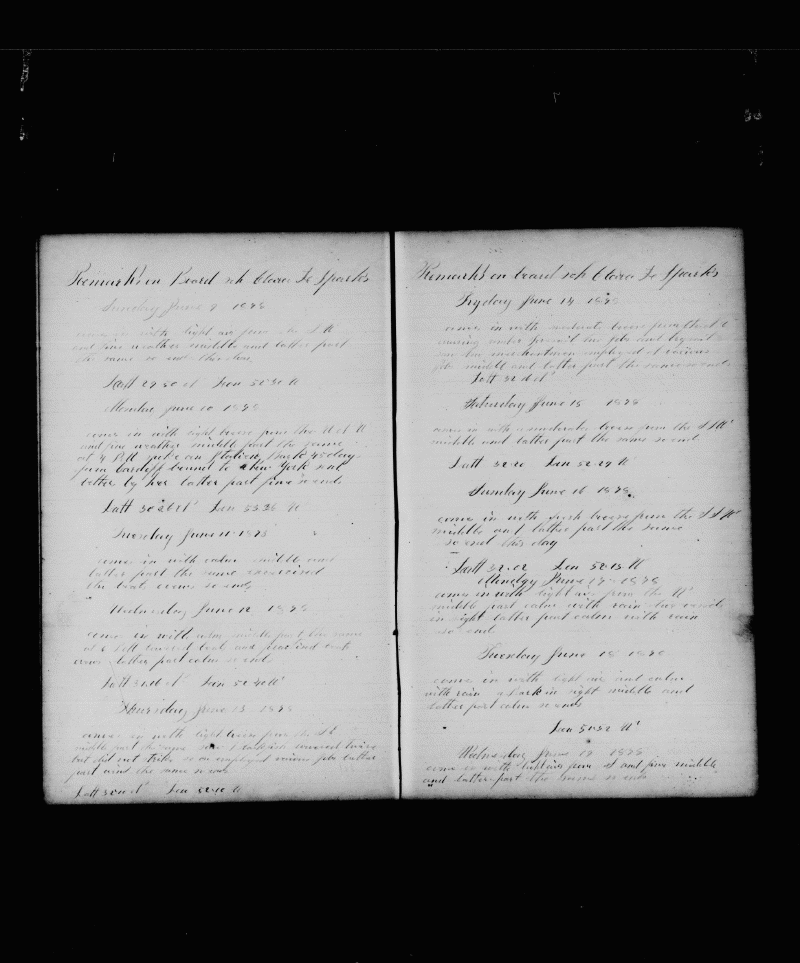 Remarks on Board sch Clara L Sparks
Sunday June 9 1878
comes in with light airs from the S W
and fine weather middle and latter part
the same so ends this day
Latt 29 50 N Lon 52 30 W
Monday June 10 1878
comes in with light breese from the W S W
and fine weather middle part the same
at 4 P M spoke an Italian Bark 45 days
from Cardiff bound to New York
latter part fine so ends
Latt 30 26 N Lon 53 36 W
Tuesday June 11 1878
comes in with calm middle and
latter part the same exercised
the boats crews so ends
Wednesday June 12 1878
comes in with calm middle part the same
at 6 A M lowered boat and practised boats
crews latter part calm so ends
Latt 31 16 N Lon 52 40 W
Thursday June 13 1878
comes in with light breese from the S E
middle part the same lowered twice
but did not strike so on employed various jobs latter
part the same so ends
Latt Lon 52 00 W
Remarks on board sch Clara L Sparks
Fryday June 14 1878
comes in with moderate breese from the
employed at various
jobs middle and latter part the same so ends
Latt 32 16 N
Saturday June 15 1878
comes in with a moderate breese from the S S W
middle and latter part the same so end
Latt 32 20 Lon 52 29 W
Sunday June 16 1878
comes in with fresh breese from the S S W
middle and latter part the same
so end this day
Latt 32 02 Lon 52 15 W
Monday June 17 1878
comes in with light airs from the W
middle part calm with rain two sails
in sight latter part calm with rain
so end
Tuesday June 18 1878
comes in with light airs and calm
with rain a bark in sight middle and
latter part calm so ends
Lon 51 52 W
Wednesday June 19 1878
comes in with light airs from S and fine middle
and latter part the same so ends